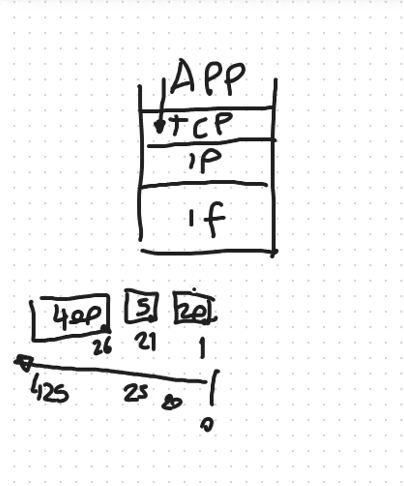 APP
TCP
IP
if
400 5 20
26 21 1
425 25 20
0